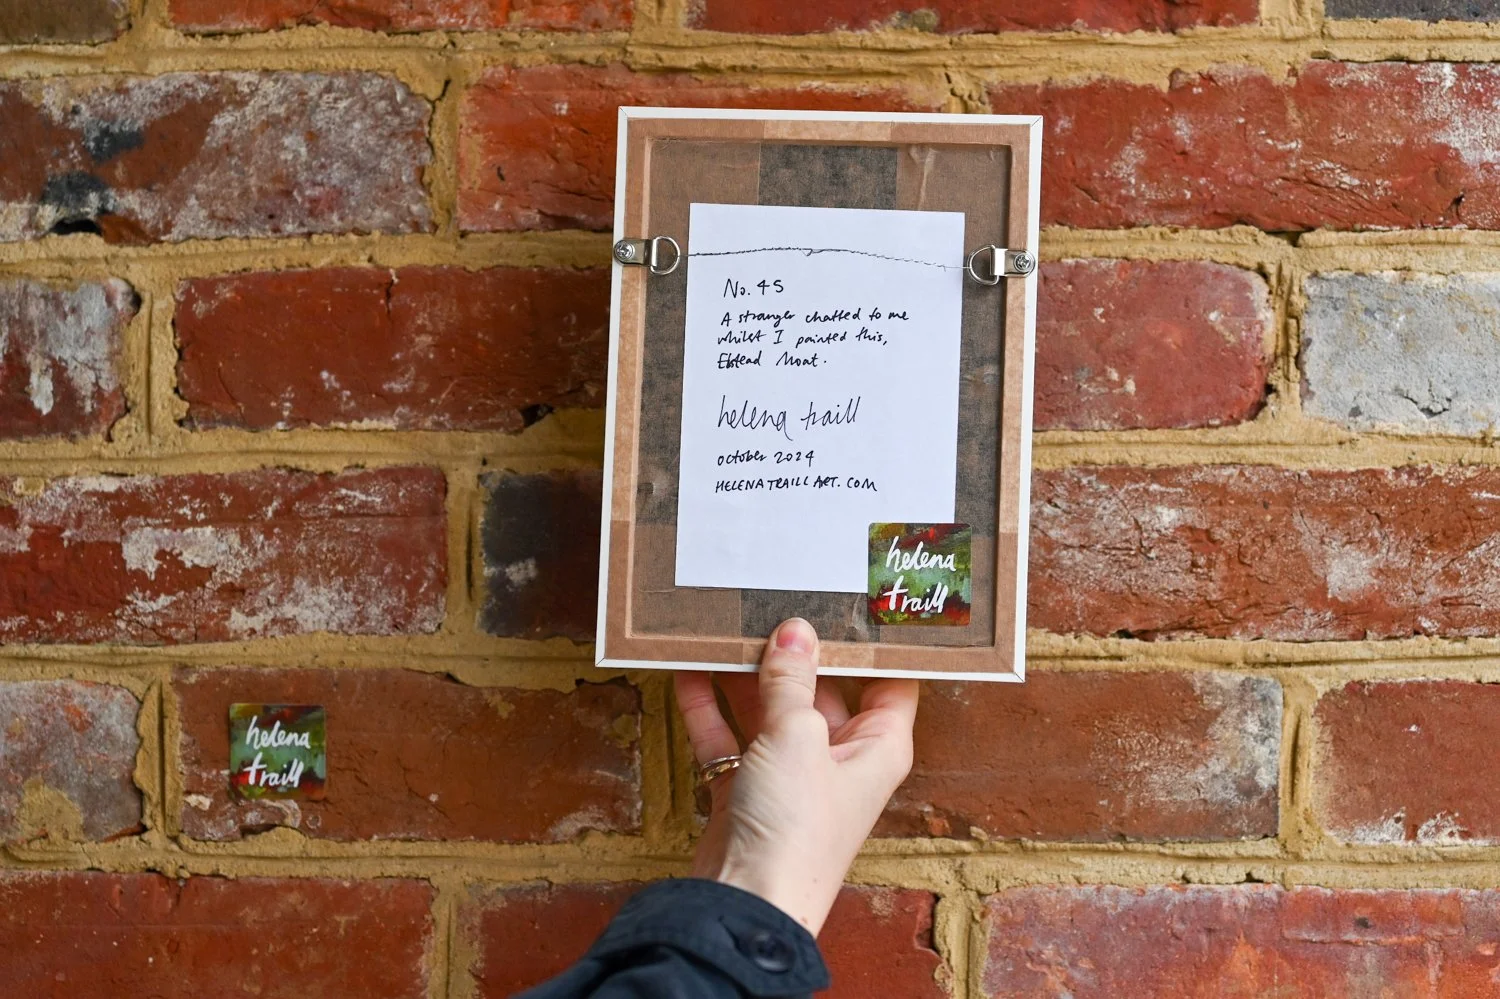 No. 45
A stranger chatted to me
whilst I painted this,
Elstead Moat.
helena traill
october 2024
HELENATRAILLART.COM
helena
traill
helena
traill